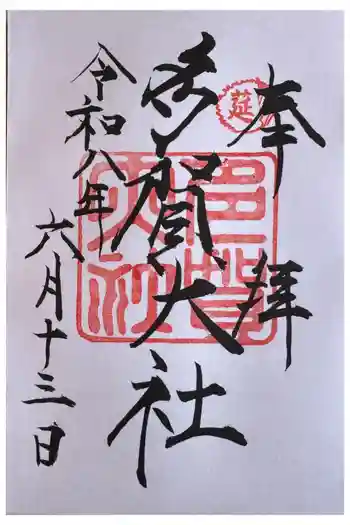 奉拝
延
多賀大社
多賀大社
令和八年
六月十三日